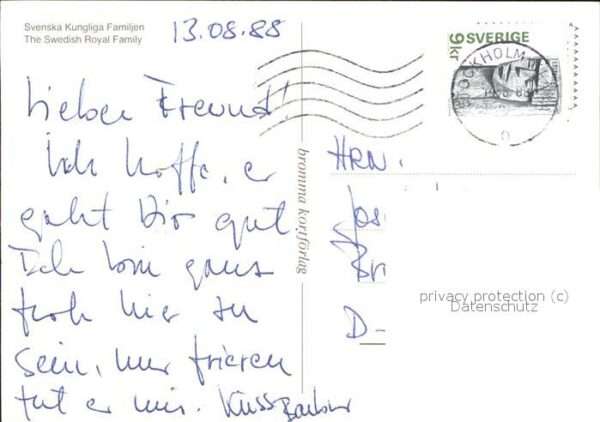 Svenska Kungliga Familjen
The Swedish Royal Family
13.08.88
Lieber Freund!
Ich hoffe, es
geht Dir gut.
Ich bin ganz
froh hier zu
sein, nur frieren
tut es mir. Kuss
bromma kortförlag
SVERIGE
9 kr
STOCKHOLM
HRN.
Jos
Bri
D-
privacy protection (c)
Datenschutz